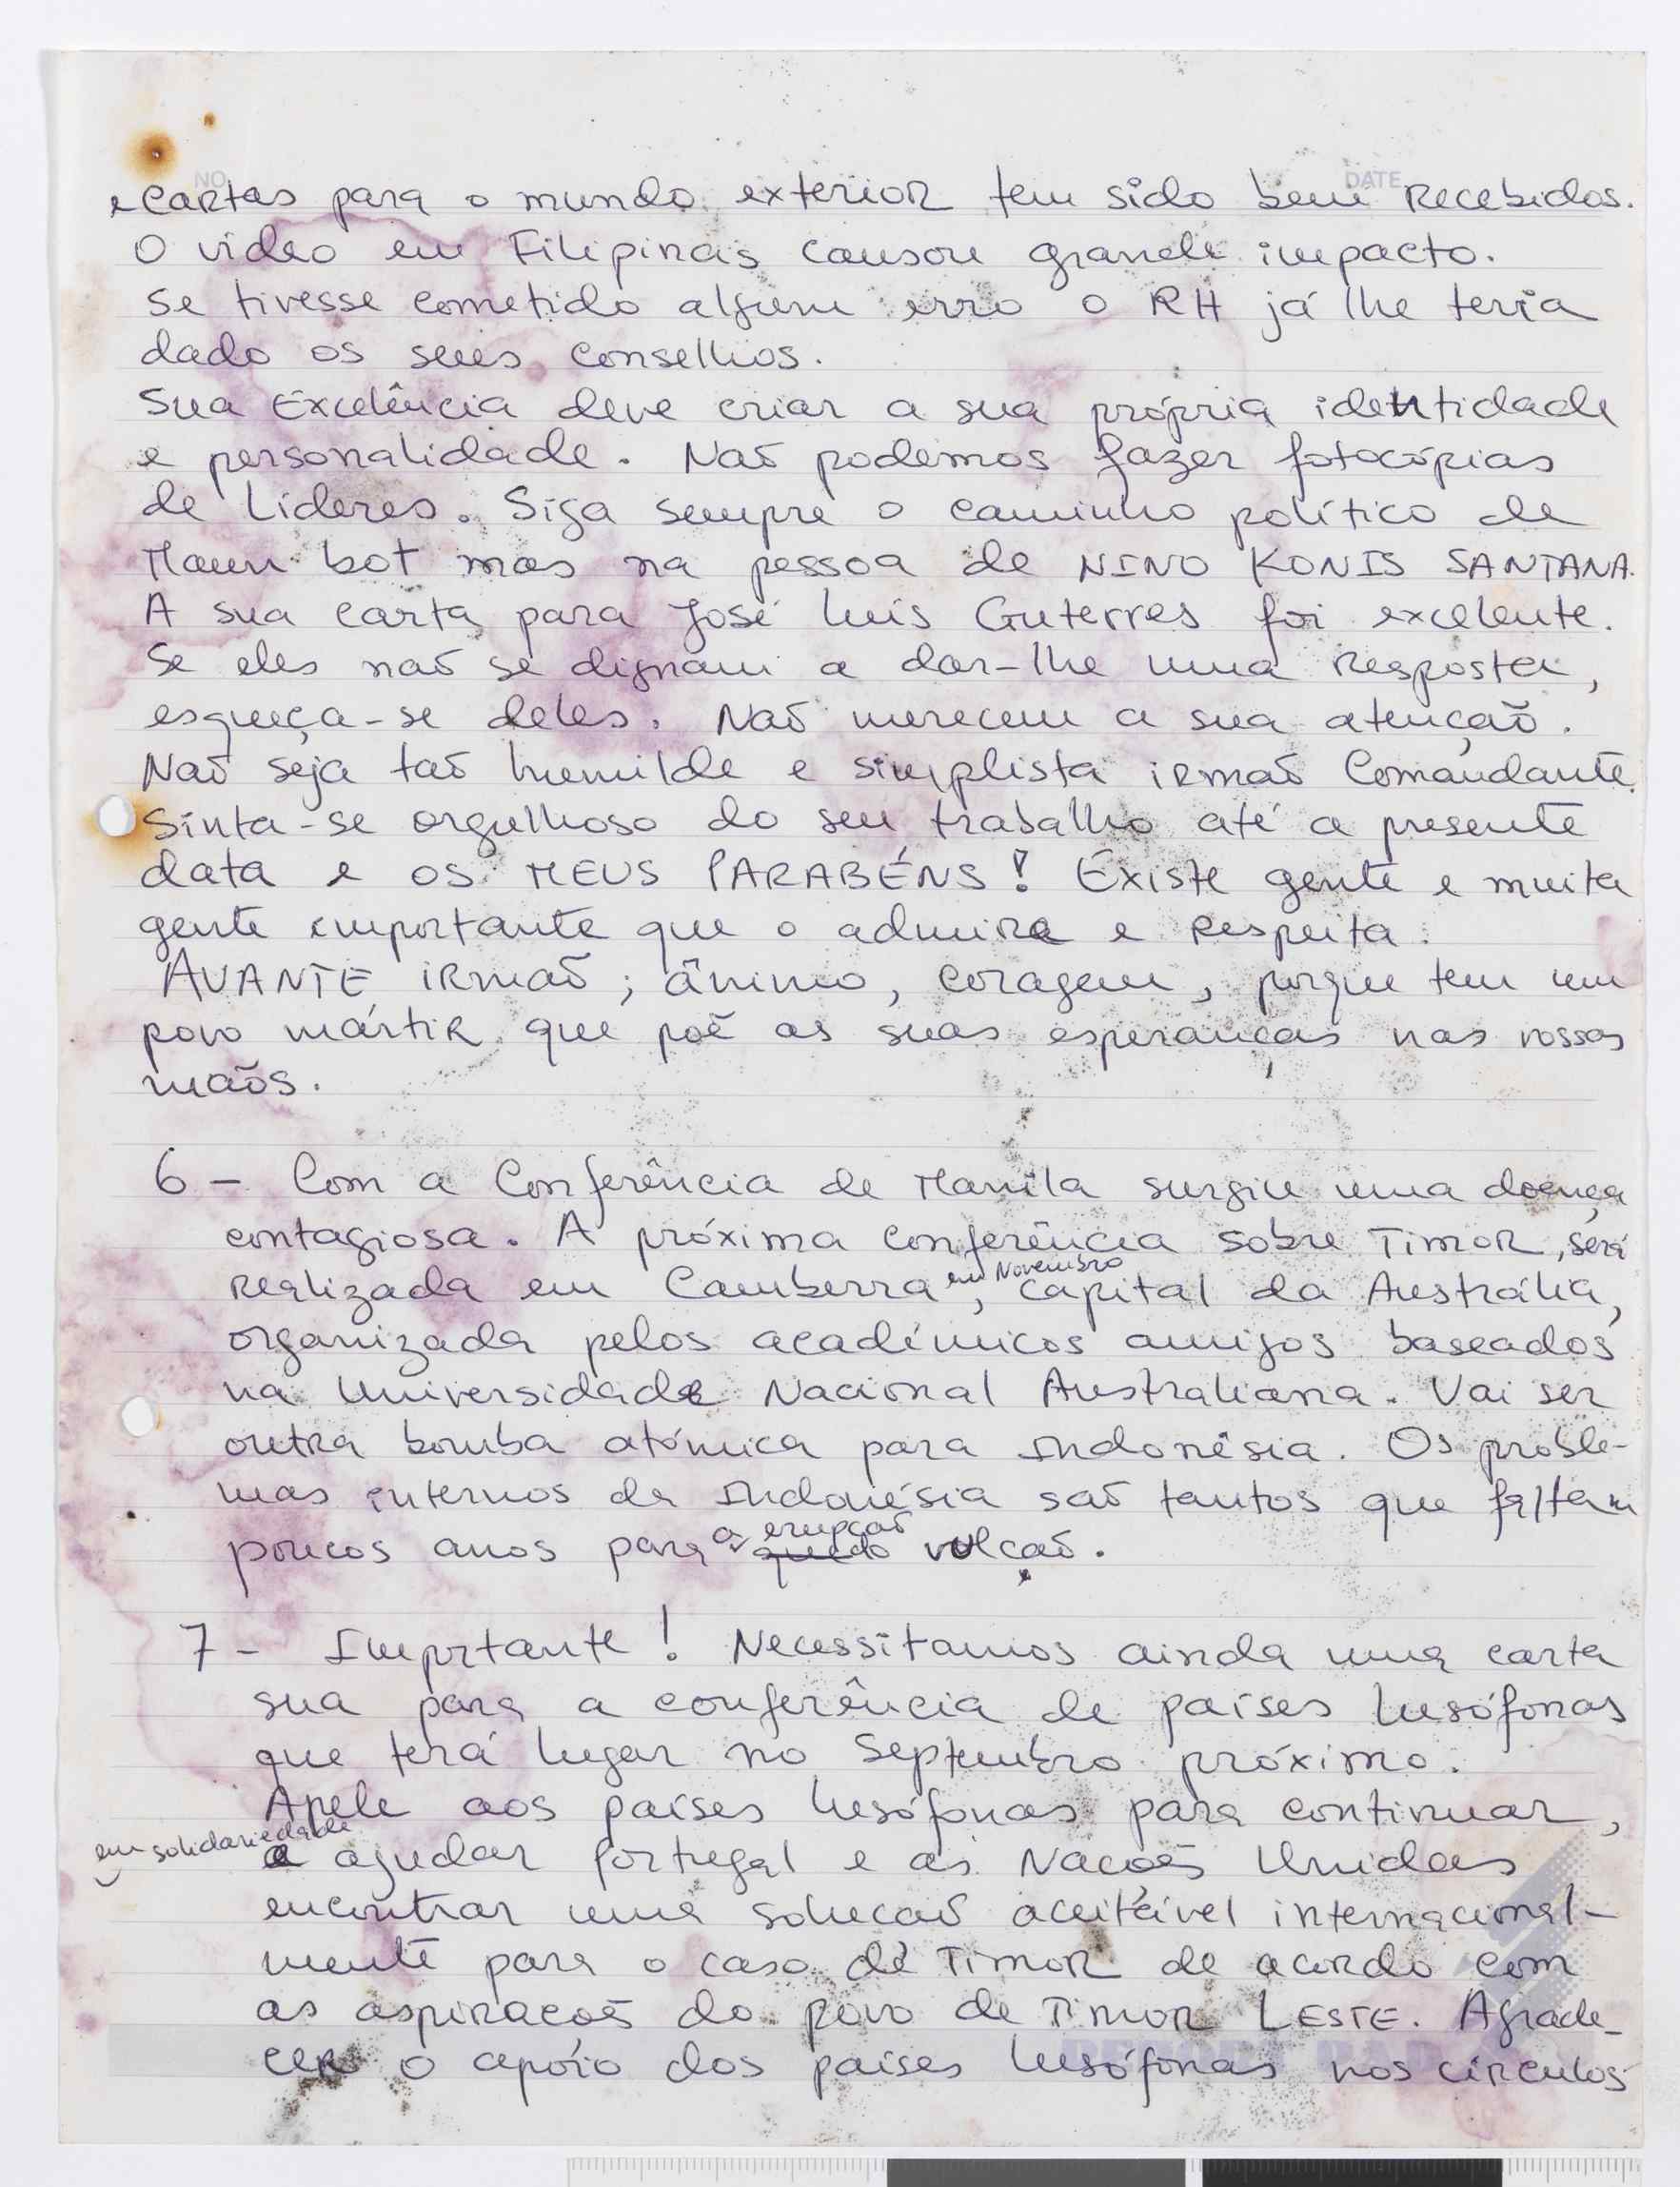 NO.
DATE
e cartas para o mundo exterior tem sido bem recebidos.
O vídeo em Filipinas causou grande impacto.
Se tivesse cometido algum erro o RH já lhe teria
dado os seus conselhos.
Sua Excelência deve criar a sua própria identidade
e personalidade. Naõ podemos fazer fotocópias
de Líderes. Siga sempre o caminho político de
Maun bot mas na pessoa de NINO KONIS SANTANA.
A sua carta para José Luís Guterres foi excelente.
Se eles naõ se dignam a dar-lhe uma resposta,
esqueça-se deles. Naõ merecem a sua atençaõ.
Naõ seja taõ humilde e simplista irmaõ Comandante.
Sinta-se orgulhoso do seu trabalho até a presente
data e OS MEUS PARABÉNS! Existe gente e muita
gente importante que o admira e respeita.
AVANTE irmaõ; ânimo, coragem, porque tem um
povo mártir que poê as suas esperanças nas vossas
maõs.
6 - Com a Conferência de Manila surgiu uma doença
contagiosa. A próxima conferência sobre Timor, será
realizada em Camberra em Novembro, capital da Austrália,
organizada pelos académicos amigos baseados
na Universidade Nacional Australiana. Vai ser
outra bomba atómica para Indonésia. Os proble-
mas internos da Indonésia saõ tantos que faltam
poucos anos para a erupçaõ do vulcaõ.
7 - Importante! Necessitamos ainda uma carta
sua para a conferência de países lusófonas
que terá lugar no Septembro próximo.
Apele aos países lusófonas para continuar,
em solidariedade a ajudar Portugal e as Nacoẽs Unidas
encontrar uma solucaõ aceitável internacional-
mente para o caso de Timor de acordo com
as aspiracoẽs do povo de TIMOR LESTE. Agrade-
cer o apóio dos países lusófonas nos círculos